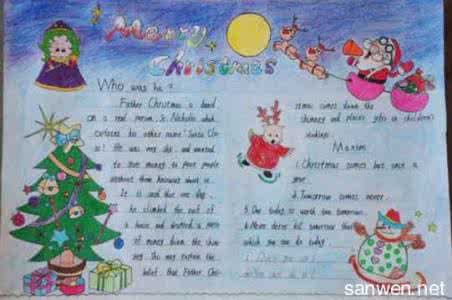 Merry
Christmas
Who was he?
Father Christmas is based
on a real person, St. Nicholas, which
explains his other name "Santa Cla
us". He was very shy, and wanted
to give money to poor people
without them knowing about it.
It is said that one day,
he climbed the roof of
a house and dropped a purse
of money down the chim
ney. This may explain the
belief that Father Chri
stmas comes down the
chimney and places gifts in children's
stockings.
Maxim
1.Christmas comes but once a
year.
2.Tomorrow comes never.
5.One today is worth two tomorrows.
6.Never defer till tomorrow that
which you can do today.
sanwen.net